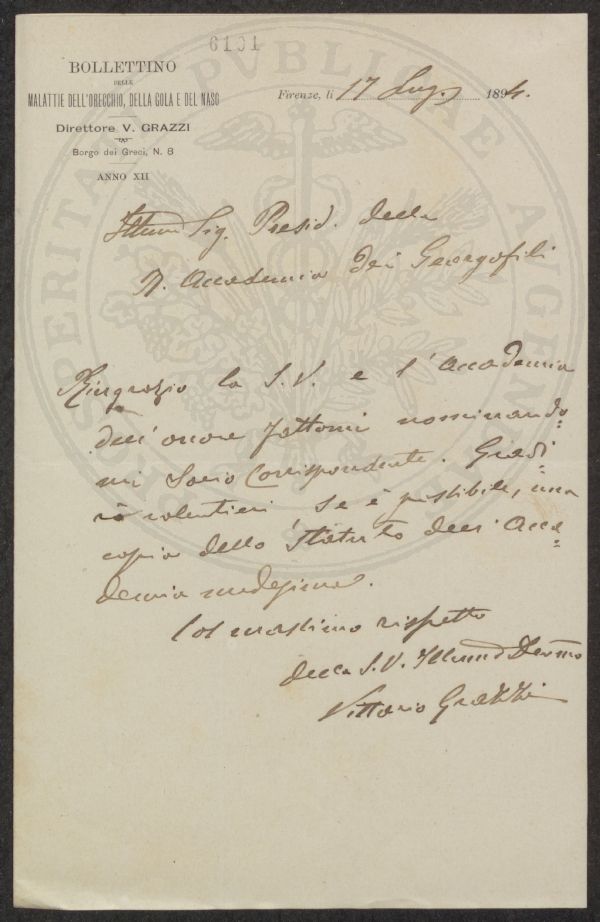 6101
BOLLETTINO
DELLE
MALATTIE DELL'ORECCHIO, DELLA GOLA E DEL NASO
Direttore V. GRAZZI
Borgo dei Greci, N. 8
ANNO XII
Firenze, li 17 Lug. 1894.
Illmo Sig. Presid. della
R. Accademia dei Georgofili
Ringrazio la S.V. e l'Accademia
dell'onore fattomi nominando-
mi Socio Corrispondente. Gradi-
rò volentieri se è possibile, una
copia dello Statuto dell'Acca-
demia medesima.
Col massimo rispetto
della S.V. Illma Devmo
Vittorio Grazzi
PROSPERITATI PVBLICAE AVGENDAE